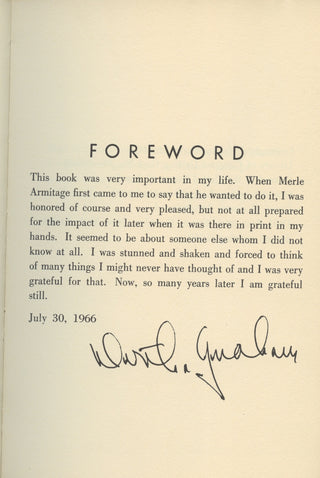 FOREWORD
This book was very important in my life. When Merle
Armitage first came to me to say that he wanted to do it, I was
honored of course and very pleased, but not at all prepared
for the impact of it later when it was there in print in my
hands. It seemed to be about someone else whom I did not
know at all. I was stunned and shaken and forced to think
of many things I might never have thought of and I was very
grateful for that. Now, so many years later I am grateful
still.
July 30, 1966
Martha Graham